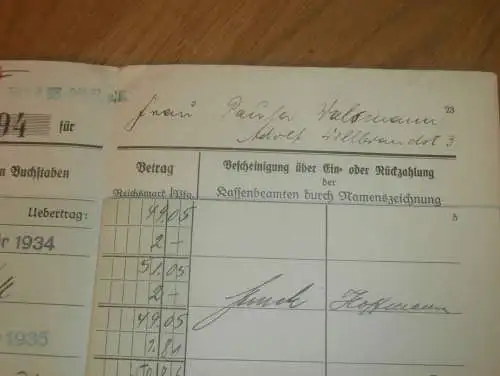 23
Frau Paula Walzmann
Adolf Hillbrandst 3
94 für
n Buchstaben
Betrag
Reichsmark Pfg.
Bescheinigung über Ein- oder Rückzahlung
der
Kassenbeamten durch Namenszeichnung
5
Uebertrag:
49 05
2 -
r 1934
51 05
2 -
Hoffmann
49 05
1935
1.81